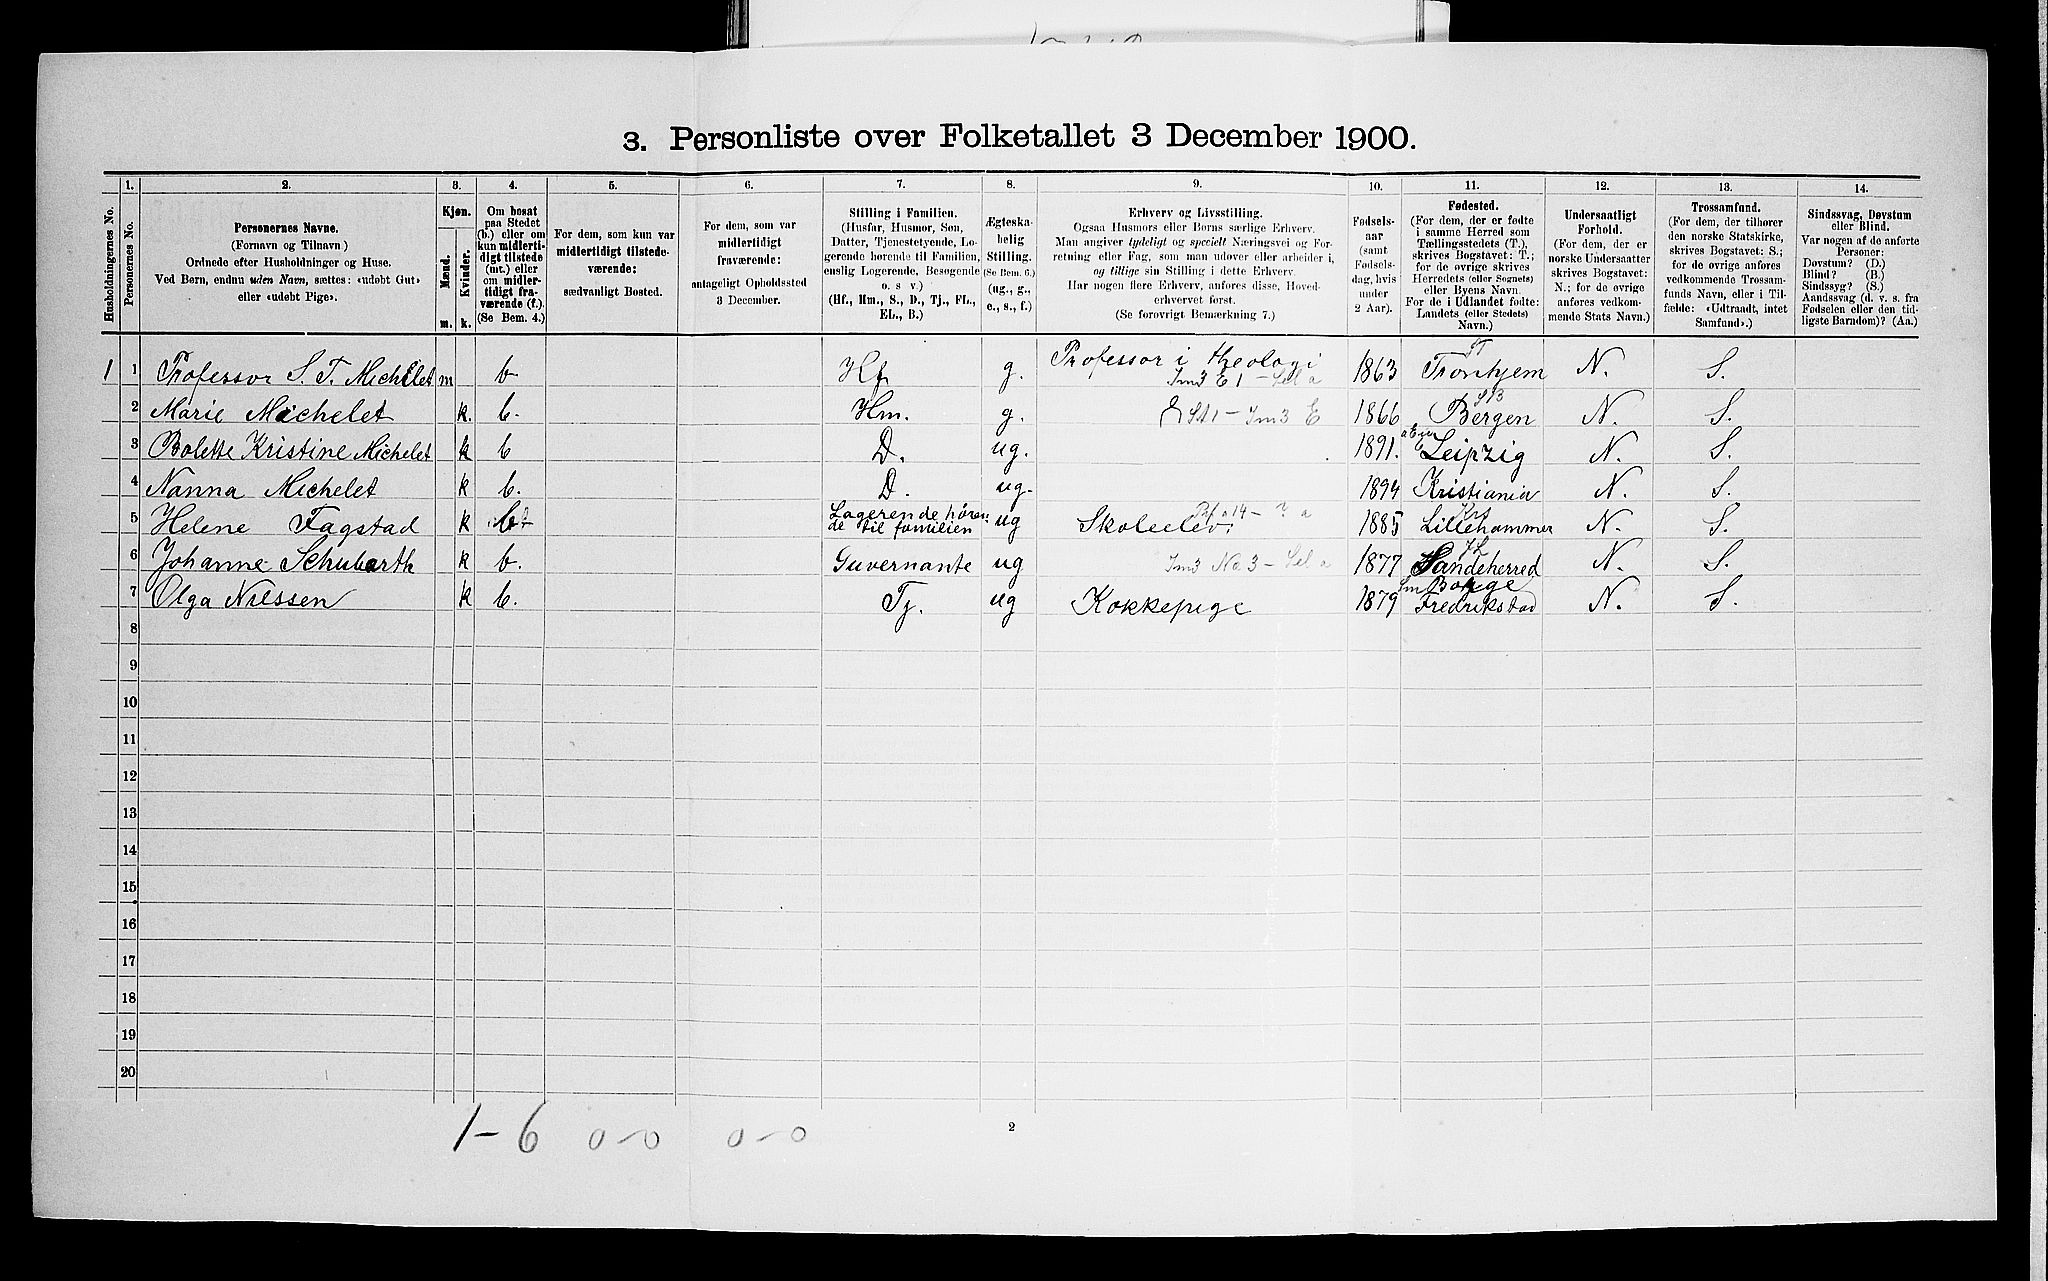 3. Personliste over Folketallet 3 December 1900.
1. 2. 3. 4. 5. 6. 7. 8. 9. 10. 11. 12. 13. 14.
Husholdningernes No.
Personernes No.
Personernes Navne.
(Fornavn og Tilnavn)
Ordnede efter Husholdninger og Huse.
Ved Børn, endnu uden Navn, sættes: «udøbt Gut»
eller «udøbt Pige».
Kjøn.
Mænd.
Kvinder.
m. k.
Om bosat
paa Stedet
(b.) eller om
kun midlerti-
digt tilstede
(mt.) eller
om midler-
tidigt fra-
værende (f.).
(Se Bem. 4.)
For dem, som kun var
midlertidigt tilstede-
værende:
sædvanligt Bosted.
For dem, som var
midlertidigt
fraværende:
antageligt Opholdssted
3 December.
Stilling i Familien.
(Husfar, Husmor, Søn,
Datter, Tjenestetyende, Lo-
gerende hørende til Familien,
enslig Logerende, Besøgende
o. s v.)
(Hf., Hm., S., D., Tj., FL.,
EL., B.)
Ægteska-
belig
Stilling.
(Se Bem. 6.)
(ug., g.,
e., s., f.)
Erhverv og Livsstilling.
Ogsaa Husmors eller Børns særlige Erhverv.
Man angiver tydeligt og specielt Næringsvei og For-
retning eller Fag, som man udøver eller arbeider i,
og tillige sin Stilling i dette Erhverv.
Har nogen flere Erhverv, anføres disse, Hoved-
erhvervet først.
(Se forøvrigt Bemærkning 7.)
Fødsels-
aar
(samt
Fødsels-
dag, hvis
under
2 Aar).
Fødested.
(For dem, der er fødte
i samme Herred som
Tællingsstedets (T.),
skrives Bogstavet: T.;
for de øvrige skrives
Herredets (eller Sognets)
eller Byens Navn.
For de i Udlandet fødte:
Landets (eller Stedets)
Navn.)
Undersaatligt
Forhold.
(For dem, der er
norske Undersaatter
skrives Bogstavet:
N.; for de øvrige
anføres vedkom-
mende Stats Navn.)
Trossamfund.
(For dem, der tilhører
den norske Statskirke,
skrives Bogstavet: S.;
for de øvrige anføres
vedkommende Trossam-
funds Navn, eller i Til-
fælde: «Udtraadt, intet
Samfund».)
Sindssvag, Døvstum
eller Blind.
Var nogen af de anførte
Personer:
Døvstum? (D.)
Blind? (B.)
Sindssyg? (S.)
Aandssvag (d. v. s. fra
Fødselen eller den tid-
ligste Barndom)? (Aa.)
1 1 Professor S. T. Michelet m b Hf g. Professor i theologi 1863 Tronhjem N. S.
2 Marie Michelet k. b. Hm. g. 1866 Bergen N. S.
3 Bolette Kristine Michelet k b D. ug. 1891. Leipzig N. S.
4 Nanna Michelet k b. D. ug. 1894 Kristiania N. S.
5 Helene Fagstad k Logerende høren-
de til familien ug Skoleelev. 1885 Lillehammer N. S.
6 Johanne Schubarth k b. Guvernante ug 1877 Sandeherred N. S.
7 Olga Nilssen k b. Tj. ug Kokkepige 1879 Borge
Fredrikstad N. S.
8
9
10
11
12
13
14
15
16
17
18
19
20
1-6 0-0 0-0
2